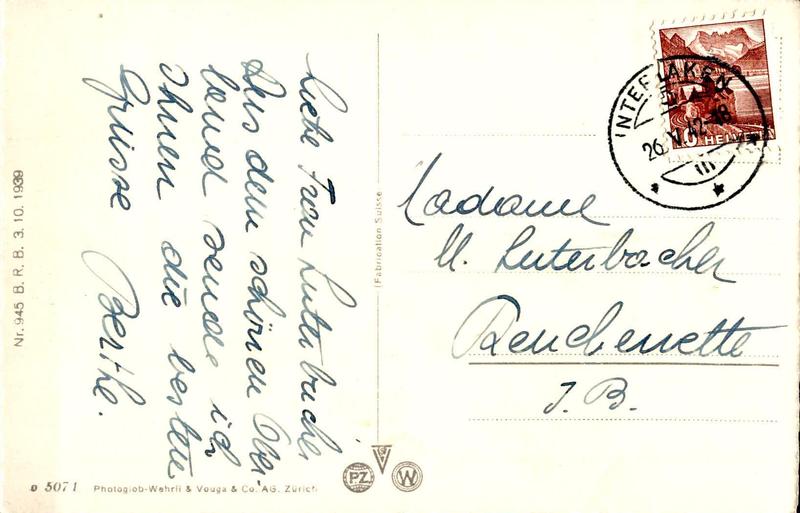 Liebe Frau Luterbacher
Aus dem schönen Ober-
land sende ich
Ihnen die besten
Grüsse
Berthe.
Nr. 945 B. R. B. 3. 10. 1939
(Fabrication Suisse
INTERLAKEN
26. V. 42-18
10 HELVETIA
Madame
M. Luterbacher
Reuchenette
J. B.
o 5071 Photoglob-Wehrli & Vouga & Co. AG. Zürich
PZ
W